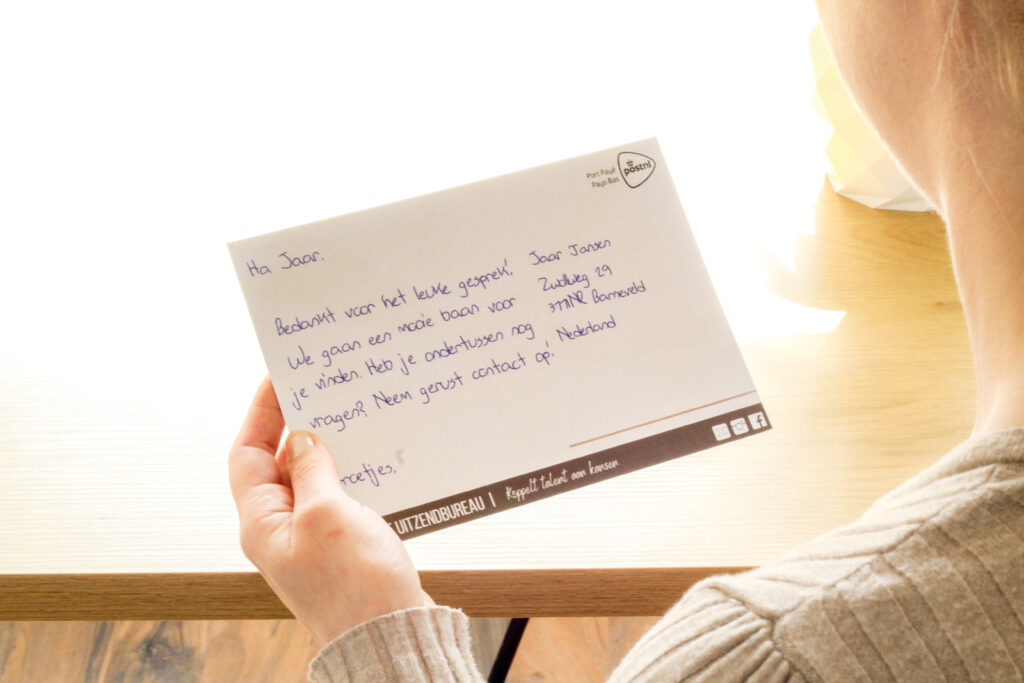 Port Payé
Pays-Bas
postnl
Ha Jaar,
Bedankt voor het leuke gesprek!
We gaan een mooie baan voor
je vinden. Heb je ondertussen nog
vragen? Neem gerust contact op!
roetjes,
Jaar Jansen
Zwolweg 29
Barneveld
Nederland
UITZENDBUREAU | Koppelt talent aan kansen